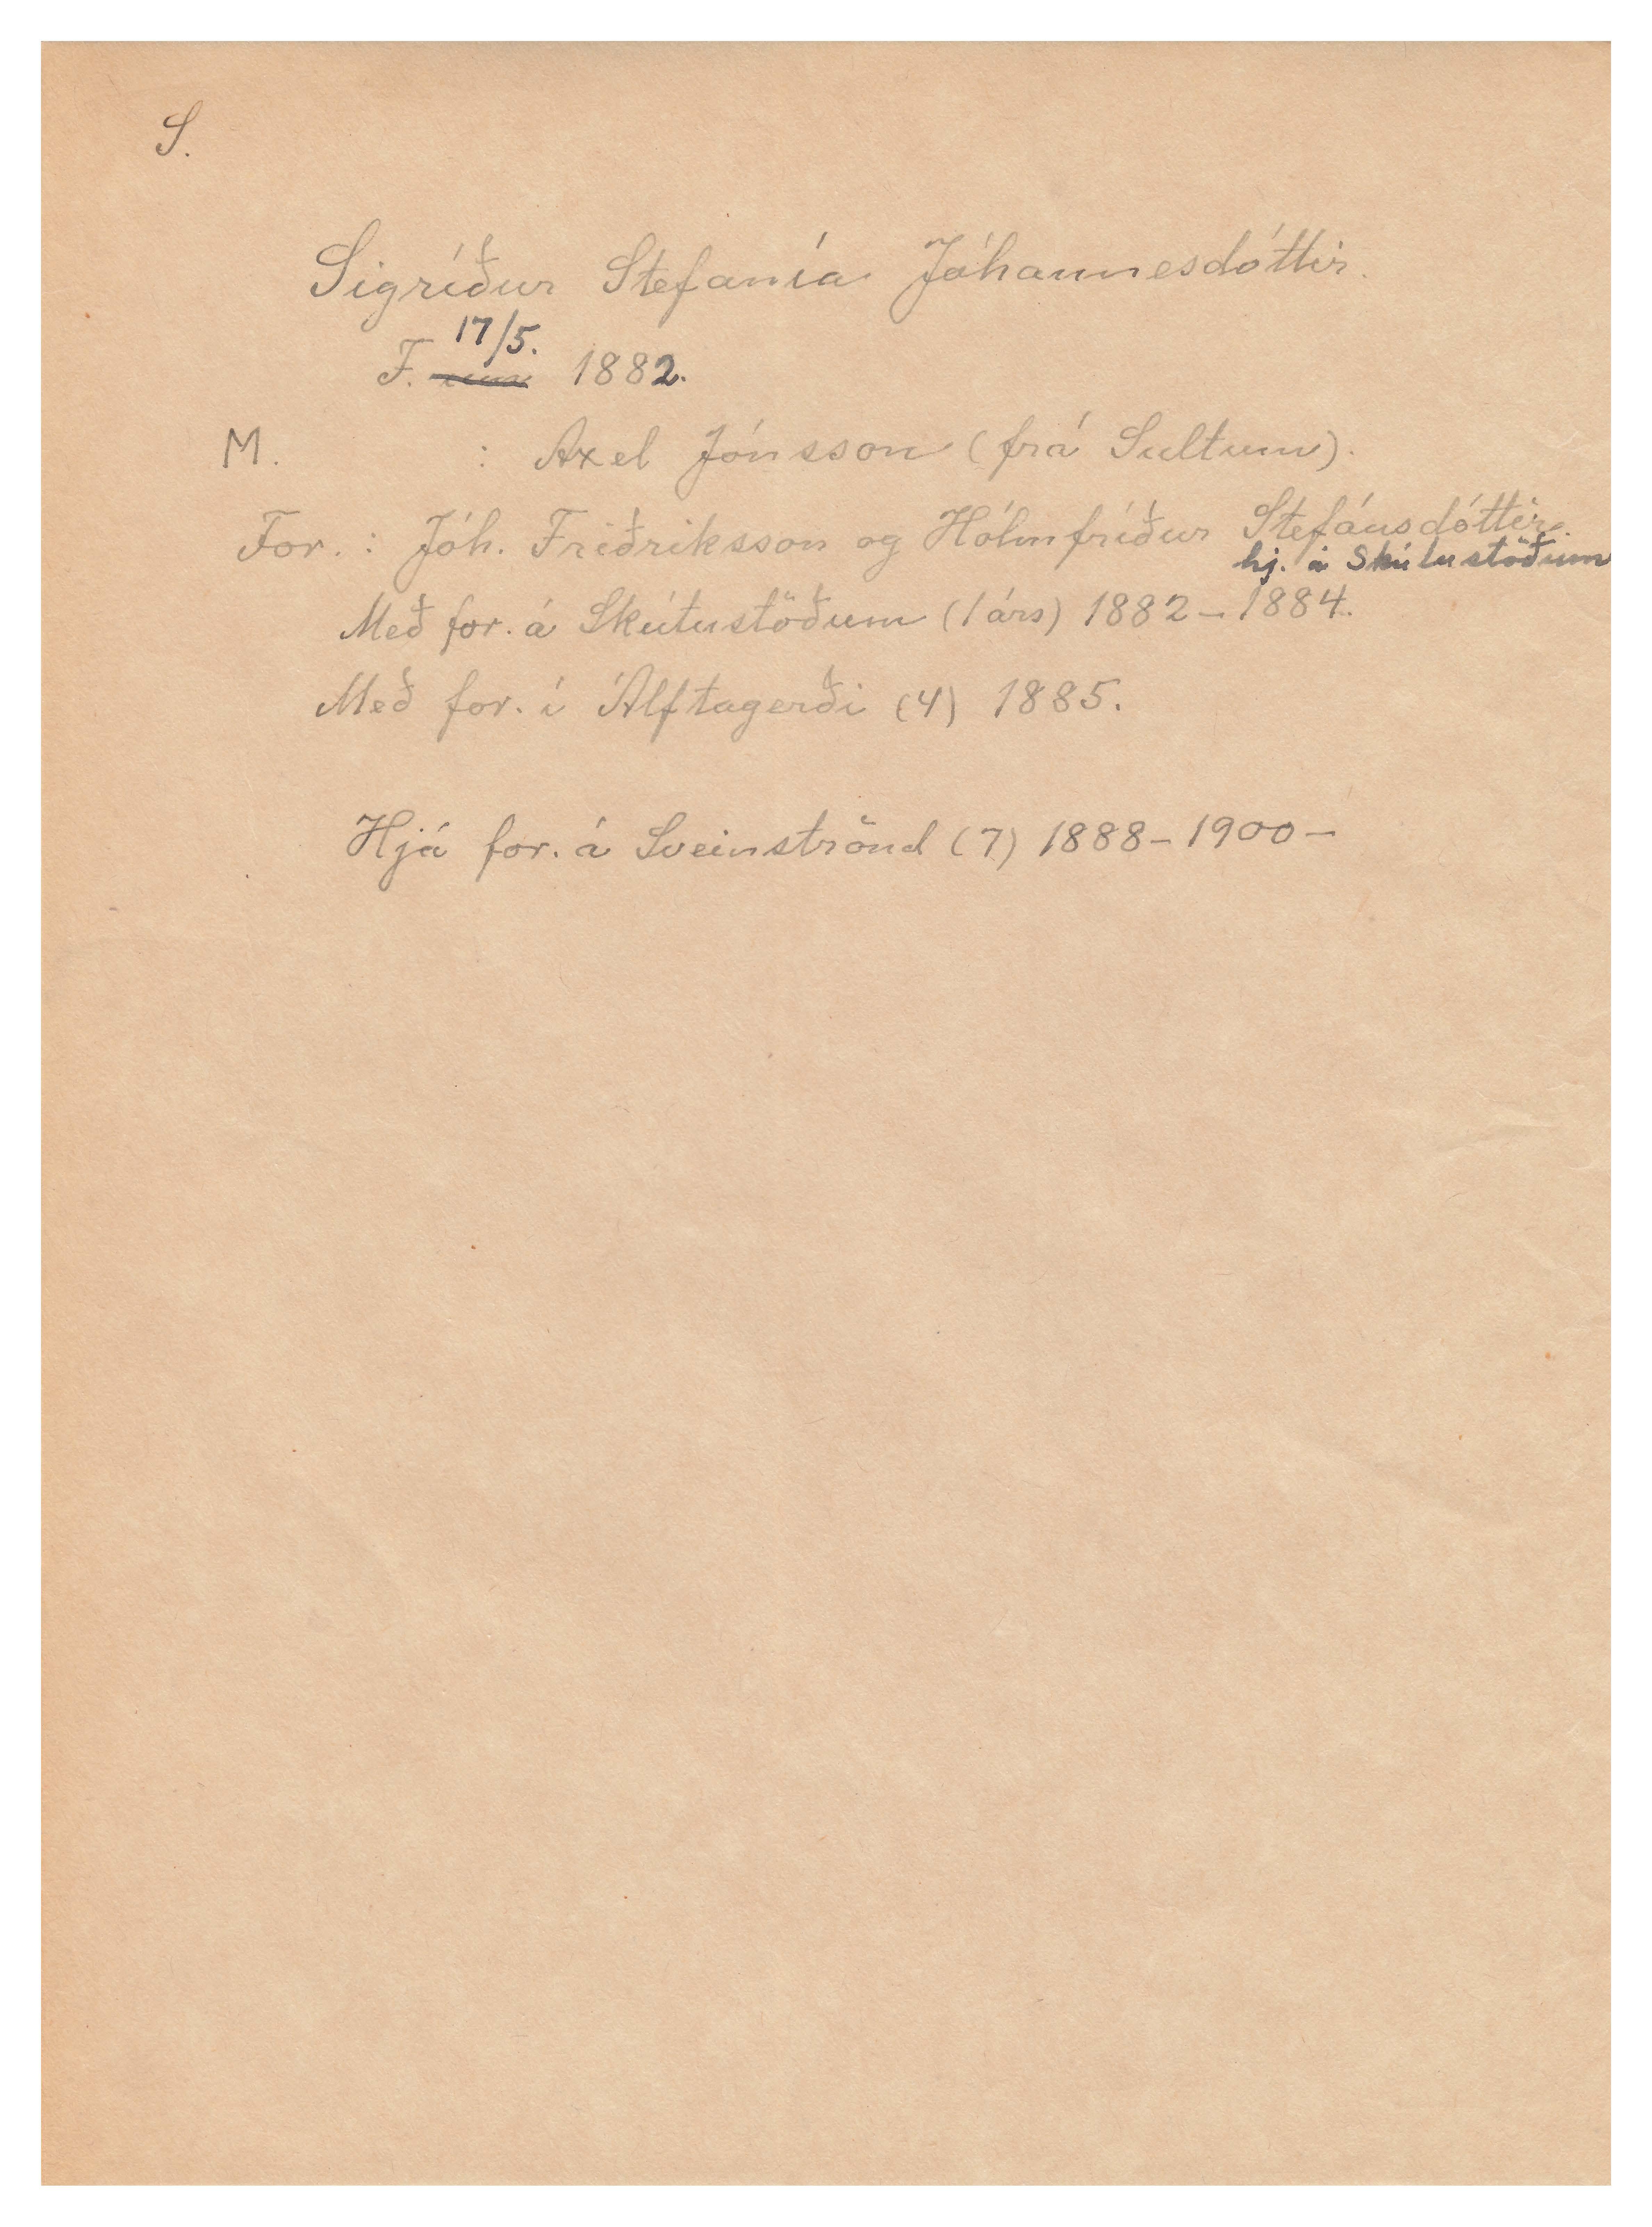 S.
Sigríður Stefanía Jóhannesdóttir.
17/5.
F. 1882.
M. : Axel Jónsson (frá Sultum).
For. : Jóh. Friðriksson og Hólmfríður Stefánsdóttir.
hj. á Skútustöðum
Með for. á Skútustöðum (1 árs) 1882 - 1884.
Með for. í Álftagerði (4) 1885.
Hjá for. á Sveinströnd (7) 1888 - 1900 -